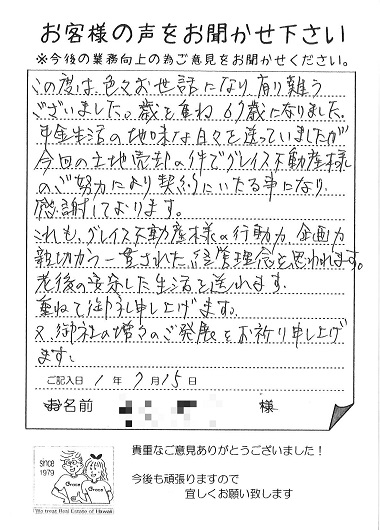 お客様の声をお聞かせ下さい
※今後の業務向上の為ご意見をお聞かせください。
この度は、色々お世話になり有り難う
ございました。歳を重ね 67歳になりました。
年金生活の地味な日々を送っていましたが
今回の土地売却の件でグレイス不動産様
のご努力により契約にいたる事になり、
感謝しております。
これも、グレイス不動産様の行動力、企画力
親切から一貫された、経営理念と思われます。
老後の安定した生活を送れます。
重ねて御礼申し上げます。
又、御社の増々のご発展をお祈り申し上げ
ます。
ご記入日 1年7月15日
お名前 様
since
1979
We treat Real Estate of Hawaii
貴重なご意見ありがとうございました！
今後も頑張りますので
宜しくお願い致します